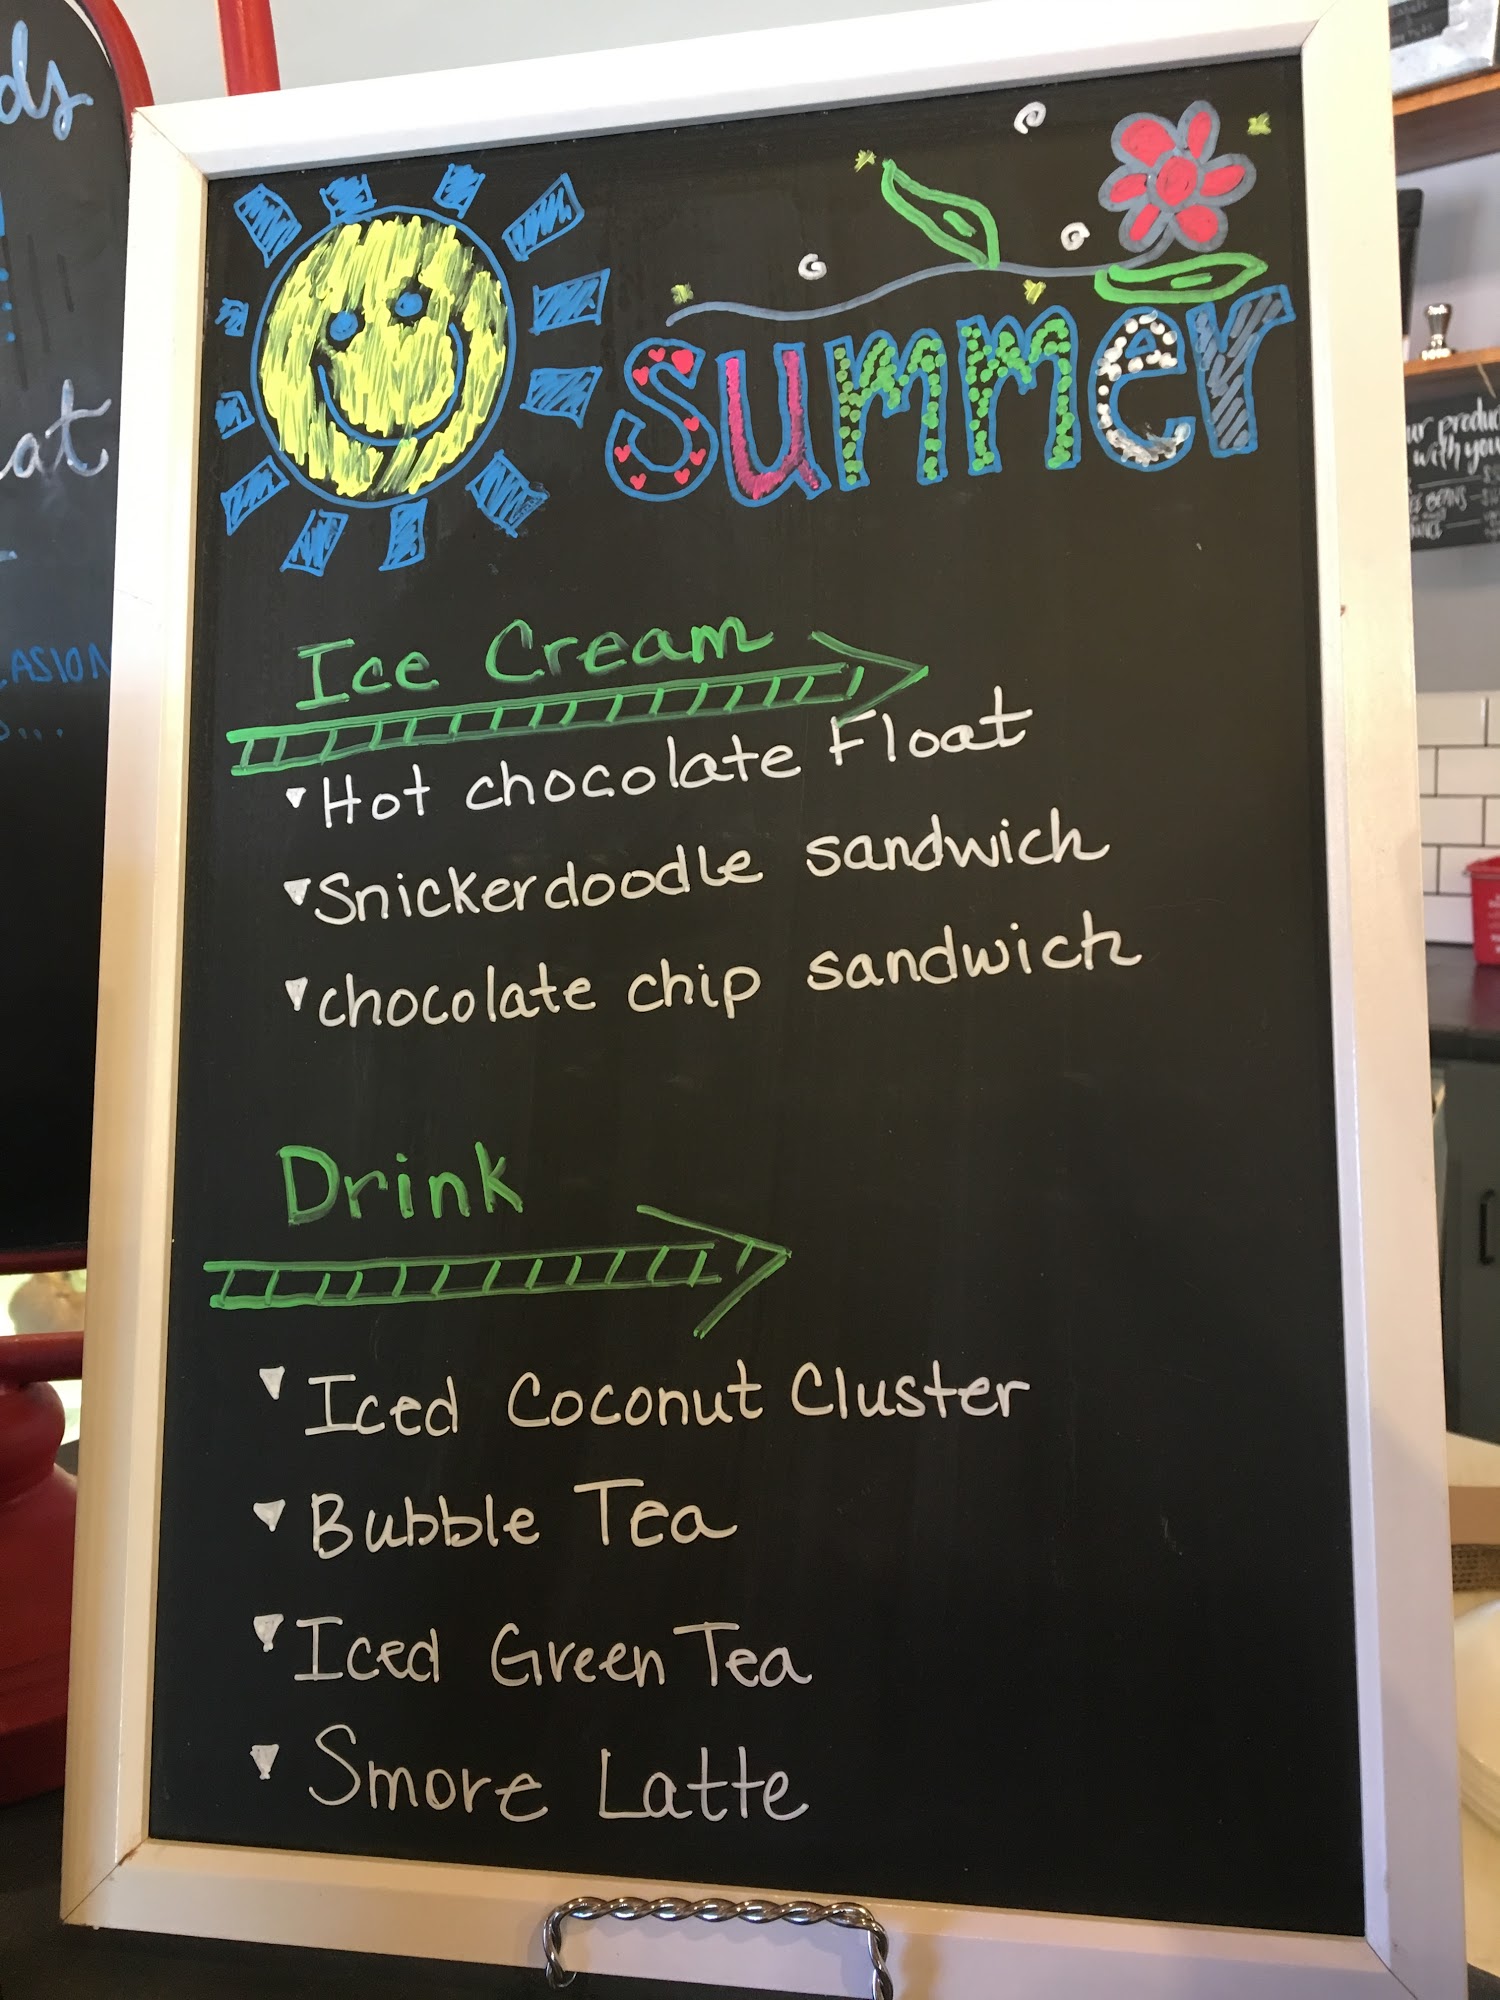 summer
Ice Cream
Hot chocolate Float
Snickerdoodle sandwich
chocolate chip sandwich
Drink
Iced Coconut Cluster
Bubble Tea
Iced Green Tea
Smore Latte
ds
at
ASION
...
ur produc
with you
BEANS